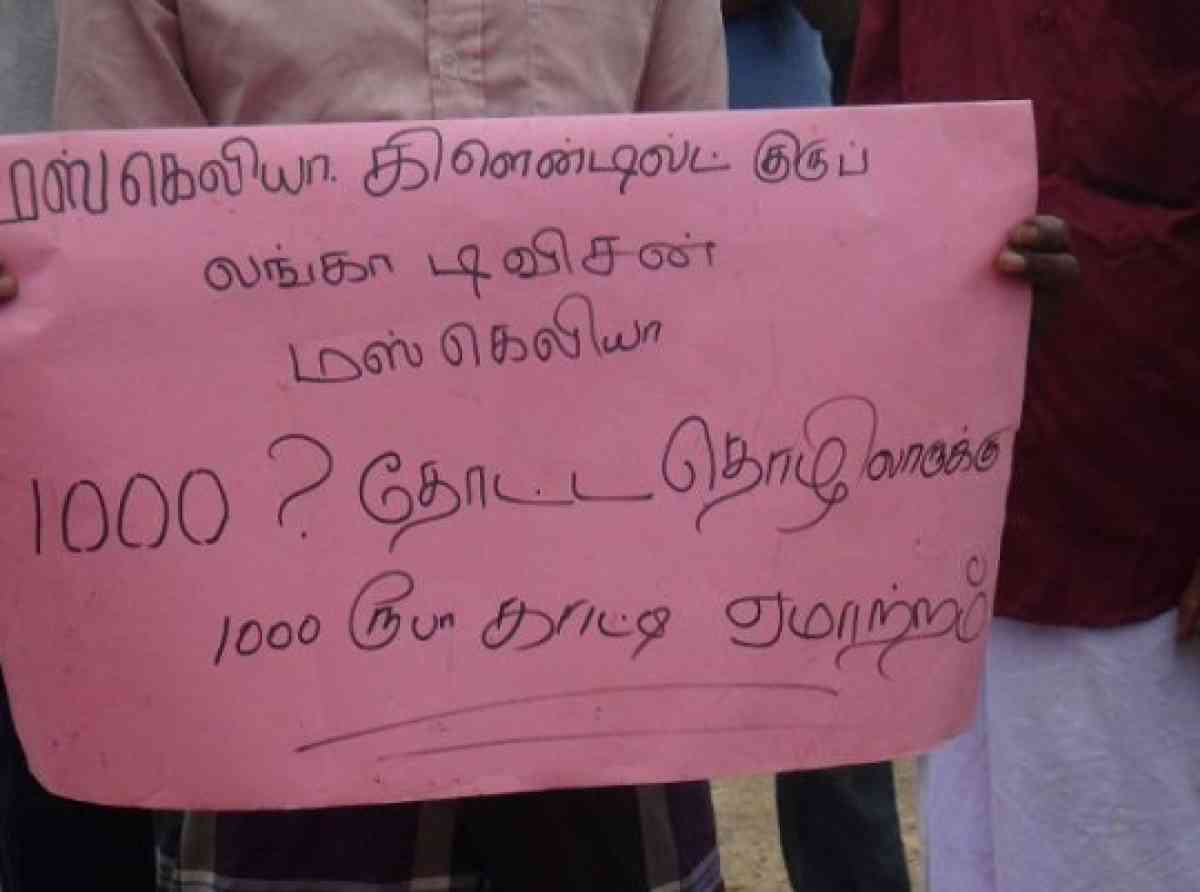 மஸ்கெலியா. கிளெண்டில்ட் குருப்
லங்கா டிவிசன்
மஸ்கெலியா
1000 ? தோட்ட தொழிலாருக்கு
1000 ரூபா காட்டி ஏமாற்றம்